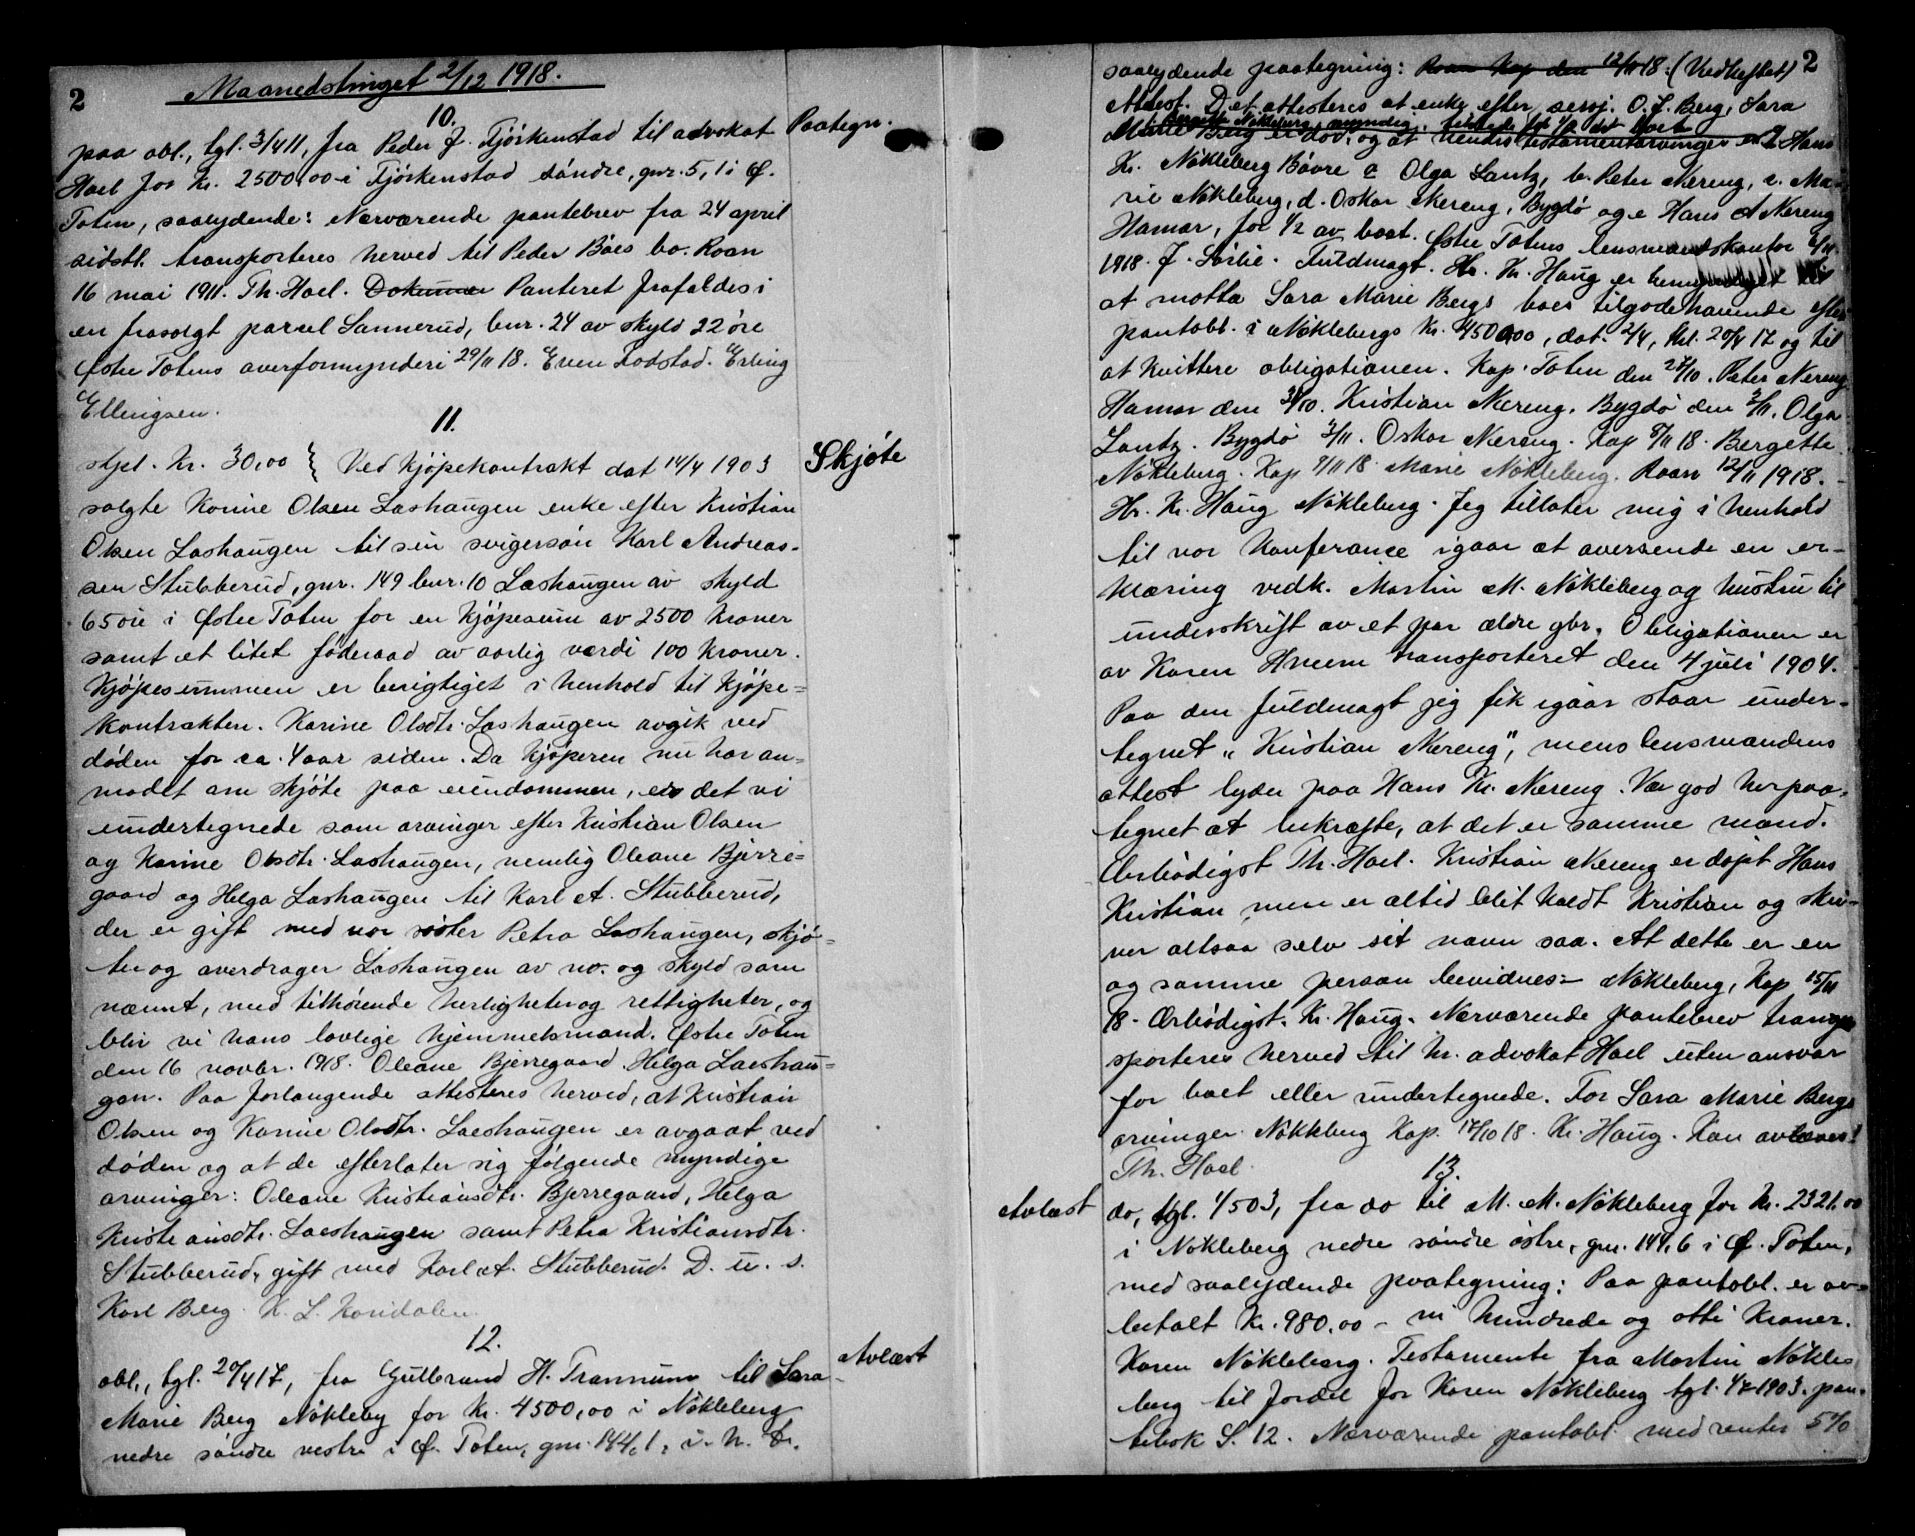 2
Maanedstinget 2/12 1918.
10.
Paategn.
paa obl., tgl. 3/4 11, fra Peder J. Fjörkenstad til advokat
Hoel for Kr. 2500,00 i Fjörkenstad söndre, gnr. 5,1 i Ø.
Toten, saalydende: Nærværende pantebrev fra 24 april
sidstl. transporteres herved til Peder Böes bo. Roan
16 mai 1911. Th. Hoel. Dokumen Panteret frafaldes i
en frasolgt parcel Sannerud, bnr. 24 av skyld 22 øre
Østre Totens overformynderi 29/11 18. Even Fodstad. Erling
Ellingsen.
11.
Skjöte
stpl. Kr. 30,00 } Ved kjöpekontrakt dat 14/4 1903
solgte Karine Olsen Lashaugen enke efter Kristian
Olsen Lashaugen til sin svigersön Karl Andreas-
sen Stubberud, gnr. 149 bnr. 10 Lashaugen av skyld
65 öre i Østre Toten for en kjöpesum av 2500 kroner
samt et litet föderaad av aarlig værdi 100 kroner.
Kjöpesummen er berigtiget i henhold til kjöpe=
kontrakten. Karine Olsdtr. Lashaugen avgik ved
döden for ca. 4 aar siden. Da kjöperen nu har an=
modet om skjöte paa eiendommen, er det vi
undertegnede som arvinger efter Kristian Olsen
og Karine Olsdtr. Lashaugen, nemlig Oleane Bjerre=
gaard og Helga Lashaugen til Karl A. Stubberud,
der er gift med vor söster Petra Lashaugen, skjö=
ter og overdrager Lashaugen av no. og skyld som
nævnt, med tilhörende herligheter og rettigheter, og
blir vi hans lovlige hjemmelsmænd. Østre Toten
den 16 novbr. 1918. Oleane Bjerregaard. Helga Laeshau=
gen. Paa forlangende attesteres herved, at Kristian
Olsen og Karine Olsdtr. Laeshaugen er avgaat ved
döden og at de efterlater sig fölgende myndige
arvinger: Oleane Kristiansdtr. Bjerregaard, Helga
Kristiansdtr. Laeshaugen samt Petra Kristiansdtr.
Stubberud, gift med Karl A. Stubberud. D. u. s.
Karl Berg. K. L.
12.
Avlæst
obl., tgl. 20/4 17, fra Gulbrand H. Trannum til Sara
Marie Berg Nökleby for Kr. 4500,00 i Nökleberg
nedre söndre vestre i Ø. Toten, gnr. 144, 1,
2
saalydende paategning: Roan Kap den 12/11 18. (Vedheftet)
Attest. Det attesteres at enke efter O. L. Berg, Sara
Bergette Nökleberg, myndig,
Marie Berg er död, og at hendes testamentarvinger er Hans
Kr. Nökleberg Bövre a Olga Lantz, b. Peter Nereng, c. Ma-
rie Nökleberg, d. Oskar Nereng, Bygdö og e Hans Nereng
Hamar, for 1/2 av boet. Østre Totens lensmandskontor 6/11
1918. J. Sörlie. Fuldmagt. Hr. Kr. Haug er
at motta Sara Marie Bergs boes tilgodehavende efter
pantobl. i Nöklebergs Kr. 4500,00, dat. 2/4, tgl. 20/4 17 og til
at kvittere obligationen. Kap. Toten den 28/10. Peter Nereng
Hamar den 31/10. Kristian Nereng. Bygdö den 3/11. Olga
Lantz. Bygdö 3/11. Oskar Nereng. Kap 8/11 18. Bergette
Nökleberg. Kap 9/11 18. Marie Nökleberg. Roan 12/11 1918.
Hr. Kr. Haug Nökleberg. Jeg tillater mig i henhold
til vor konferance igaar at oversende en er-
klæring vedk. Martin M. Nökleberg og hustru til
underskrift av et par ældre gbr. Obligationen er
av Karen transporteret den 4 juli 1904.
Paa den fuldmagt jeg fik igaar staar under-
tegnet "Kristian Nereng", mens lensmandens
attest lyder paa Hans Kr. Nereng. Vær god her paa-
tegnet at bekræfte, at det er samme mand.
Ærbödigst Th. Hoel. Kristian Nereng er döpt Hans
Kristian men er altid blit kaldt Kristian og skri-
ver altsaa selv sit navn saa. At dette er en
og samme person bevidnes - Nökleberg, Kap 15/11
18. Ærbödigst. Kr. Haug. Nærværende pantebrev tran-
sporteres herved til hr. advokat Hoel uten ansvar
for boet eller undertegnede. For Sara Marie Bergs
arvinger. Nökkleberg Kap. 17/10 18. Kr. Haug. Kan avlæses!
Th. Hoel.
13.
Avlæst
do, tgl. 1/5 03, fra do til M. M. Nökleberg for Kr. 2321.00
i Nökleberg nedre söndre östre, gnr. 144, 6 i Ø. Toten,
med saalydende paategning: Paa pantobl. er av=
betalt Kr. 980.00 - ni hundrede og otti kroner.
Karen Nökleberg. Testamente fra Martin Nökle=
berg til fordel for Karen Nökleberg tgl. 1/7 1903. pan-
tebok S. 12. Nærværende pantobl. med renter 5%